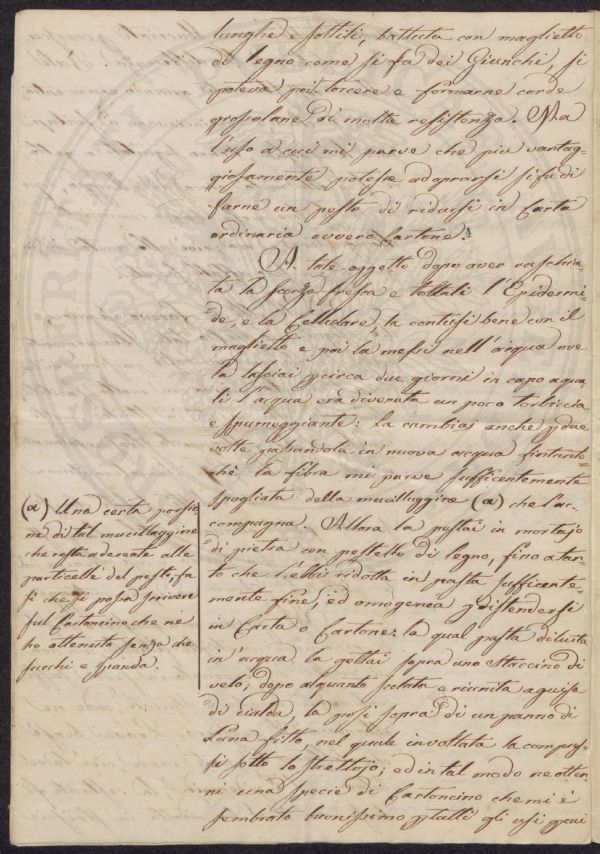 lunghe e sottili, battuta con maglietto
di legno come si fa dei Giunchi, si
poteva poi torcere e formarne corde
grossolane di molta resistenza. Ma
l'uso a cui mi parve che più vantag-
giosamente potesse adoprarsi si fu di
farne un pesto di ridursi in Carta
ordinaria ovvero Cartone.
A tale oggetto dopo aver raschia-
ta la scorza fresca e toltali l'Epidermi-
de, e la Cellulare, la contusi bene con il
maglietto e poi la messi nell'acqua ove
la lasciai pcirca due giorni in capo aqua-
li l'acqua era divenuta un poco torbiccia
e spumeggiante: La cambiai anche p due
volte passandola in nuova acqua fintanto
chè la fibra mi parve sufficentemente
spogliata della mucillaggine (a) che l'ac-
compagna. Allora la pestai in mortajo
di pietra con pestello di legno, fino a tan-
to che l'ebbi ridotta in pasta sufficente-
mente fine, ed omogenea p distendersi
in Carta o Cartone: la qual pasta diluita
in acqua la gettai sopra uno Staccino di
velo; dopo alquanto scolata e riunita a guisa
di cialda, la posi sopra di un panno di
Lana fitto, nel quale involtata la compres-
si sotto lo strettojo; ed in tal modo ne otten-
ni una specie di Cartoncino che mi è
sembrato buonissimo p tutti gli usi p cui
(a) Una certa porzio
ne di tal mucillaggine
che resta aderente alle
particelle del pesto, fa
si che si possa scrivere
sul Cartoncino che ne
ho ottenuto senza che
succhi e spanda.